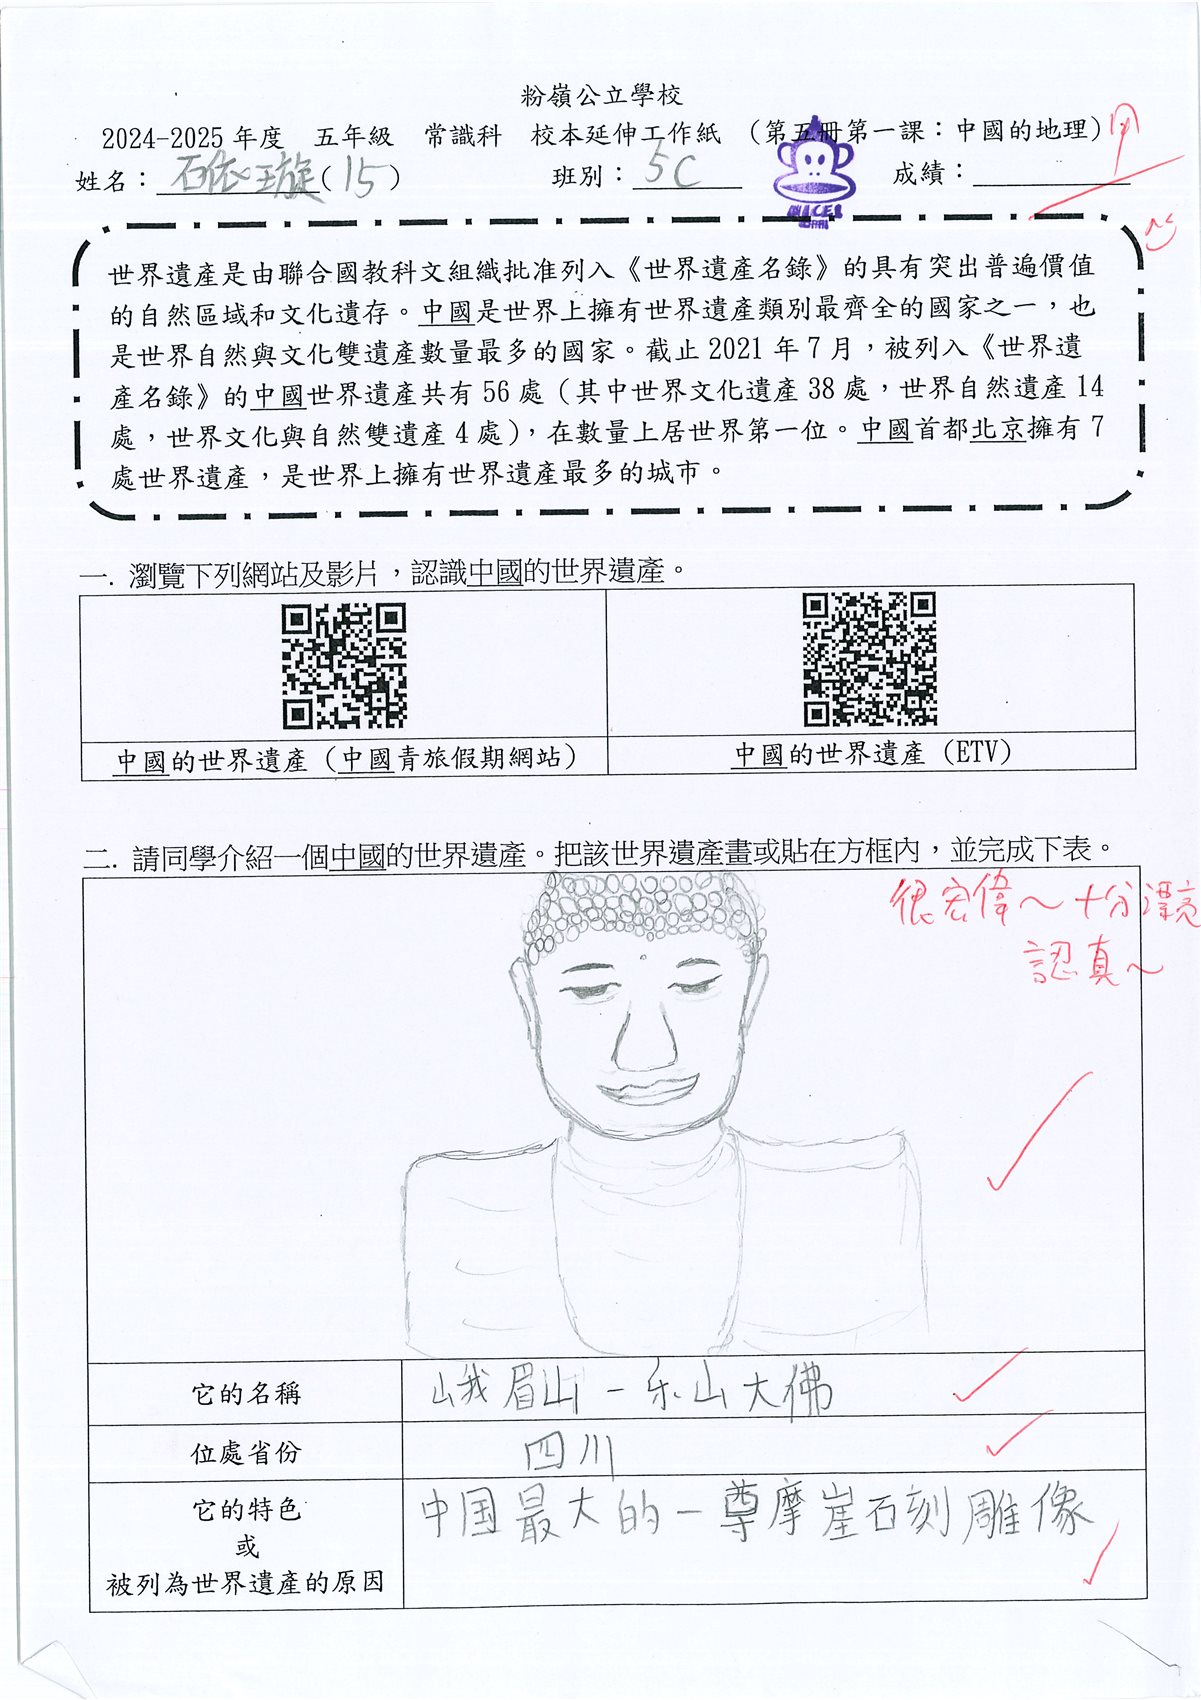 粉嶺公立學校
2024-2025 年度 五年級 常識科 校本延伸工作紙 (第五冊第一課：中國的地理)
姓名：石依璇(15) 班別：5C 成績：甲
NICE!
世界遺產是由聯合國教科文組織批准列入《世界遺產名錄》的具有突出普遍價值
的自然區域和文化遺存。中國是世界上擁有世界遺產類別最齊全的國家之一，也
是世界自然與文化雙遺產數量最多的國家。截止 2021 年 7 月，被列入《世界遺
產名錄》的中國世界遺產共有 56 處 (其中世界文化遺產 38 處，世界自然遺產 14
處，世界文化與自然雙遺產 4 處)，在數量上居世界第一位。中國首都北京擁有 7
處世界遺產，是世界上擁有世界遺產最多的城市。
一. 瀏覽下列網站及影片，認識中國的世界遺產。
中國的世界遺產 (中國青旅假期網站) 中國的世界遺產 (ETV)
二. 請同學介紹一個中國的世界遺產。把該世界遺產畫或貼在方框內，並完成下表。
很宏偉～十分漂亮
認真～
它的名稱 峨眉山－乐山大佛
位處省份 四川
它的特色 中国最大的一尊摩崖石刻雕像
或
被列為世界遺產的原因